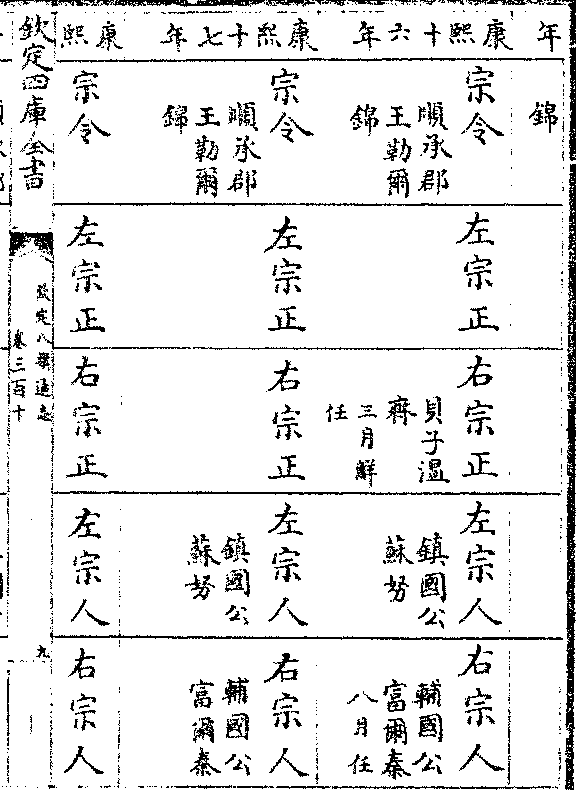 年
錦
康熙十六年
宗令
順承郡
王勒爾
錦
左宗正
右宗正
貝子溫
齊
三月解
任
左宗人
鎮國公
蘇努
右宗人
輔國公
富爾泰
八月任
康熙十七年
宗令
順承郡
王勒爾
錦
左宗正
右宗正
左宗人
鎮國公
蘇努
右宗人
輔國公
富爾泰
康熙
宗令
左宗正
右宗正
左宗人
右宗人
欽定四庫全書
欽定八旗通志
卷三百十
九